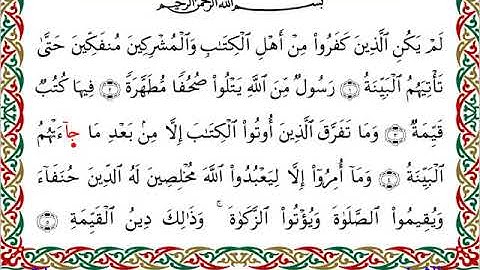 بسم الله الرحمن الرحيم
لَمۡ يَكُنِ ٱلَّذِينَ كَفَرُواْ مِنۡ أَهۡلِ ٱلۡكِتَٰبِ وَٱلۡمُشۡرِكِينَ مُنفَكِّينَ حَتَّىٰ
تَأۡتِيَهُمُ ٱلۡبَيِّنَةُ ١ رَسُولٞ مِّنَ ٱللَّهِ يَتۡلُواْ صُحُفٗا مُّطَهَّرَةٗ ٢ فِيهَا كُتُبٞ
قَيِّمَةٞ ٣ وَمَا تَفَرَّقَ ٱلَّذِينَ أُوتُواْ ٱلۡكِتَٰبَ إِلَّا مِنۢ بَعۡدِ مَا جَآءَتۡهُمُ
ٱلۡبَيِّنَةُ ٤ وَمَآ أُمِرُوٓاْ إِلَّا لِيَعۡبُدُواْ ٱللَّهَ مُخۡلِصِينَ لَهُ ٱلدِّينَ حُنَفَآءَ
وَيُقِيمُواْ ٱلصَّلَوٰةَ وَيُؤۡتُواْ ٱلزَّكَوٰةَۚ وَذَٰلِكَ دِينُ ٱلۡقَيِّمَةِ ٥